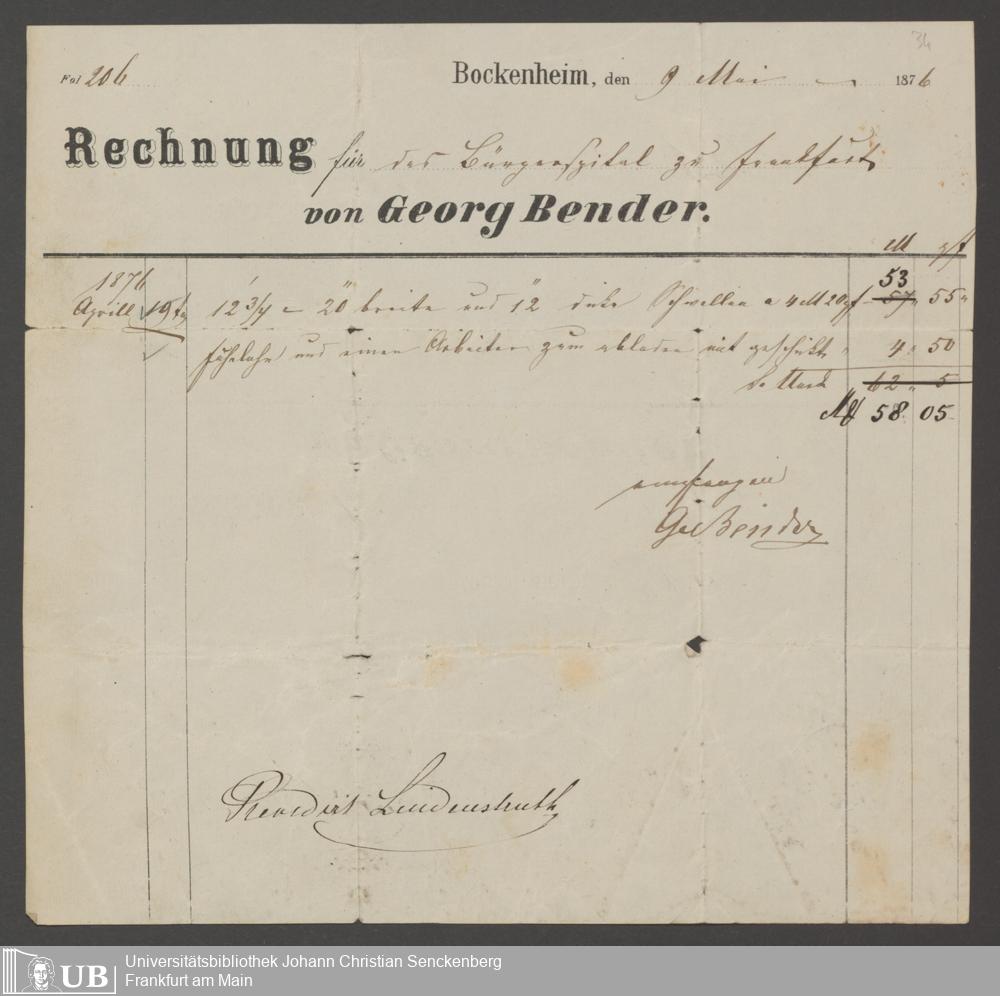 34
Fol 206
Bockenheim, den 9 Mai 1876
Rechnung für das Bürgerspital zu Frankfurt
von Georg Bender.
M pf
1876
53
Aprill 19 12' 3/4 – 20" breite und 12" dicke Schwellen a 4 M 20 pf 57 " 55 "
Fuhrlohn und einen Arbeiter zum abladen mit geschickt " 4 " 50
Mark " 62 " 5
M 58 05
empfangen
Bender
Benedict Lindenstruth
UB
Universitätsbibliothek Johann Christian Senckenberg
Frankfurt am Main